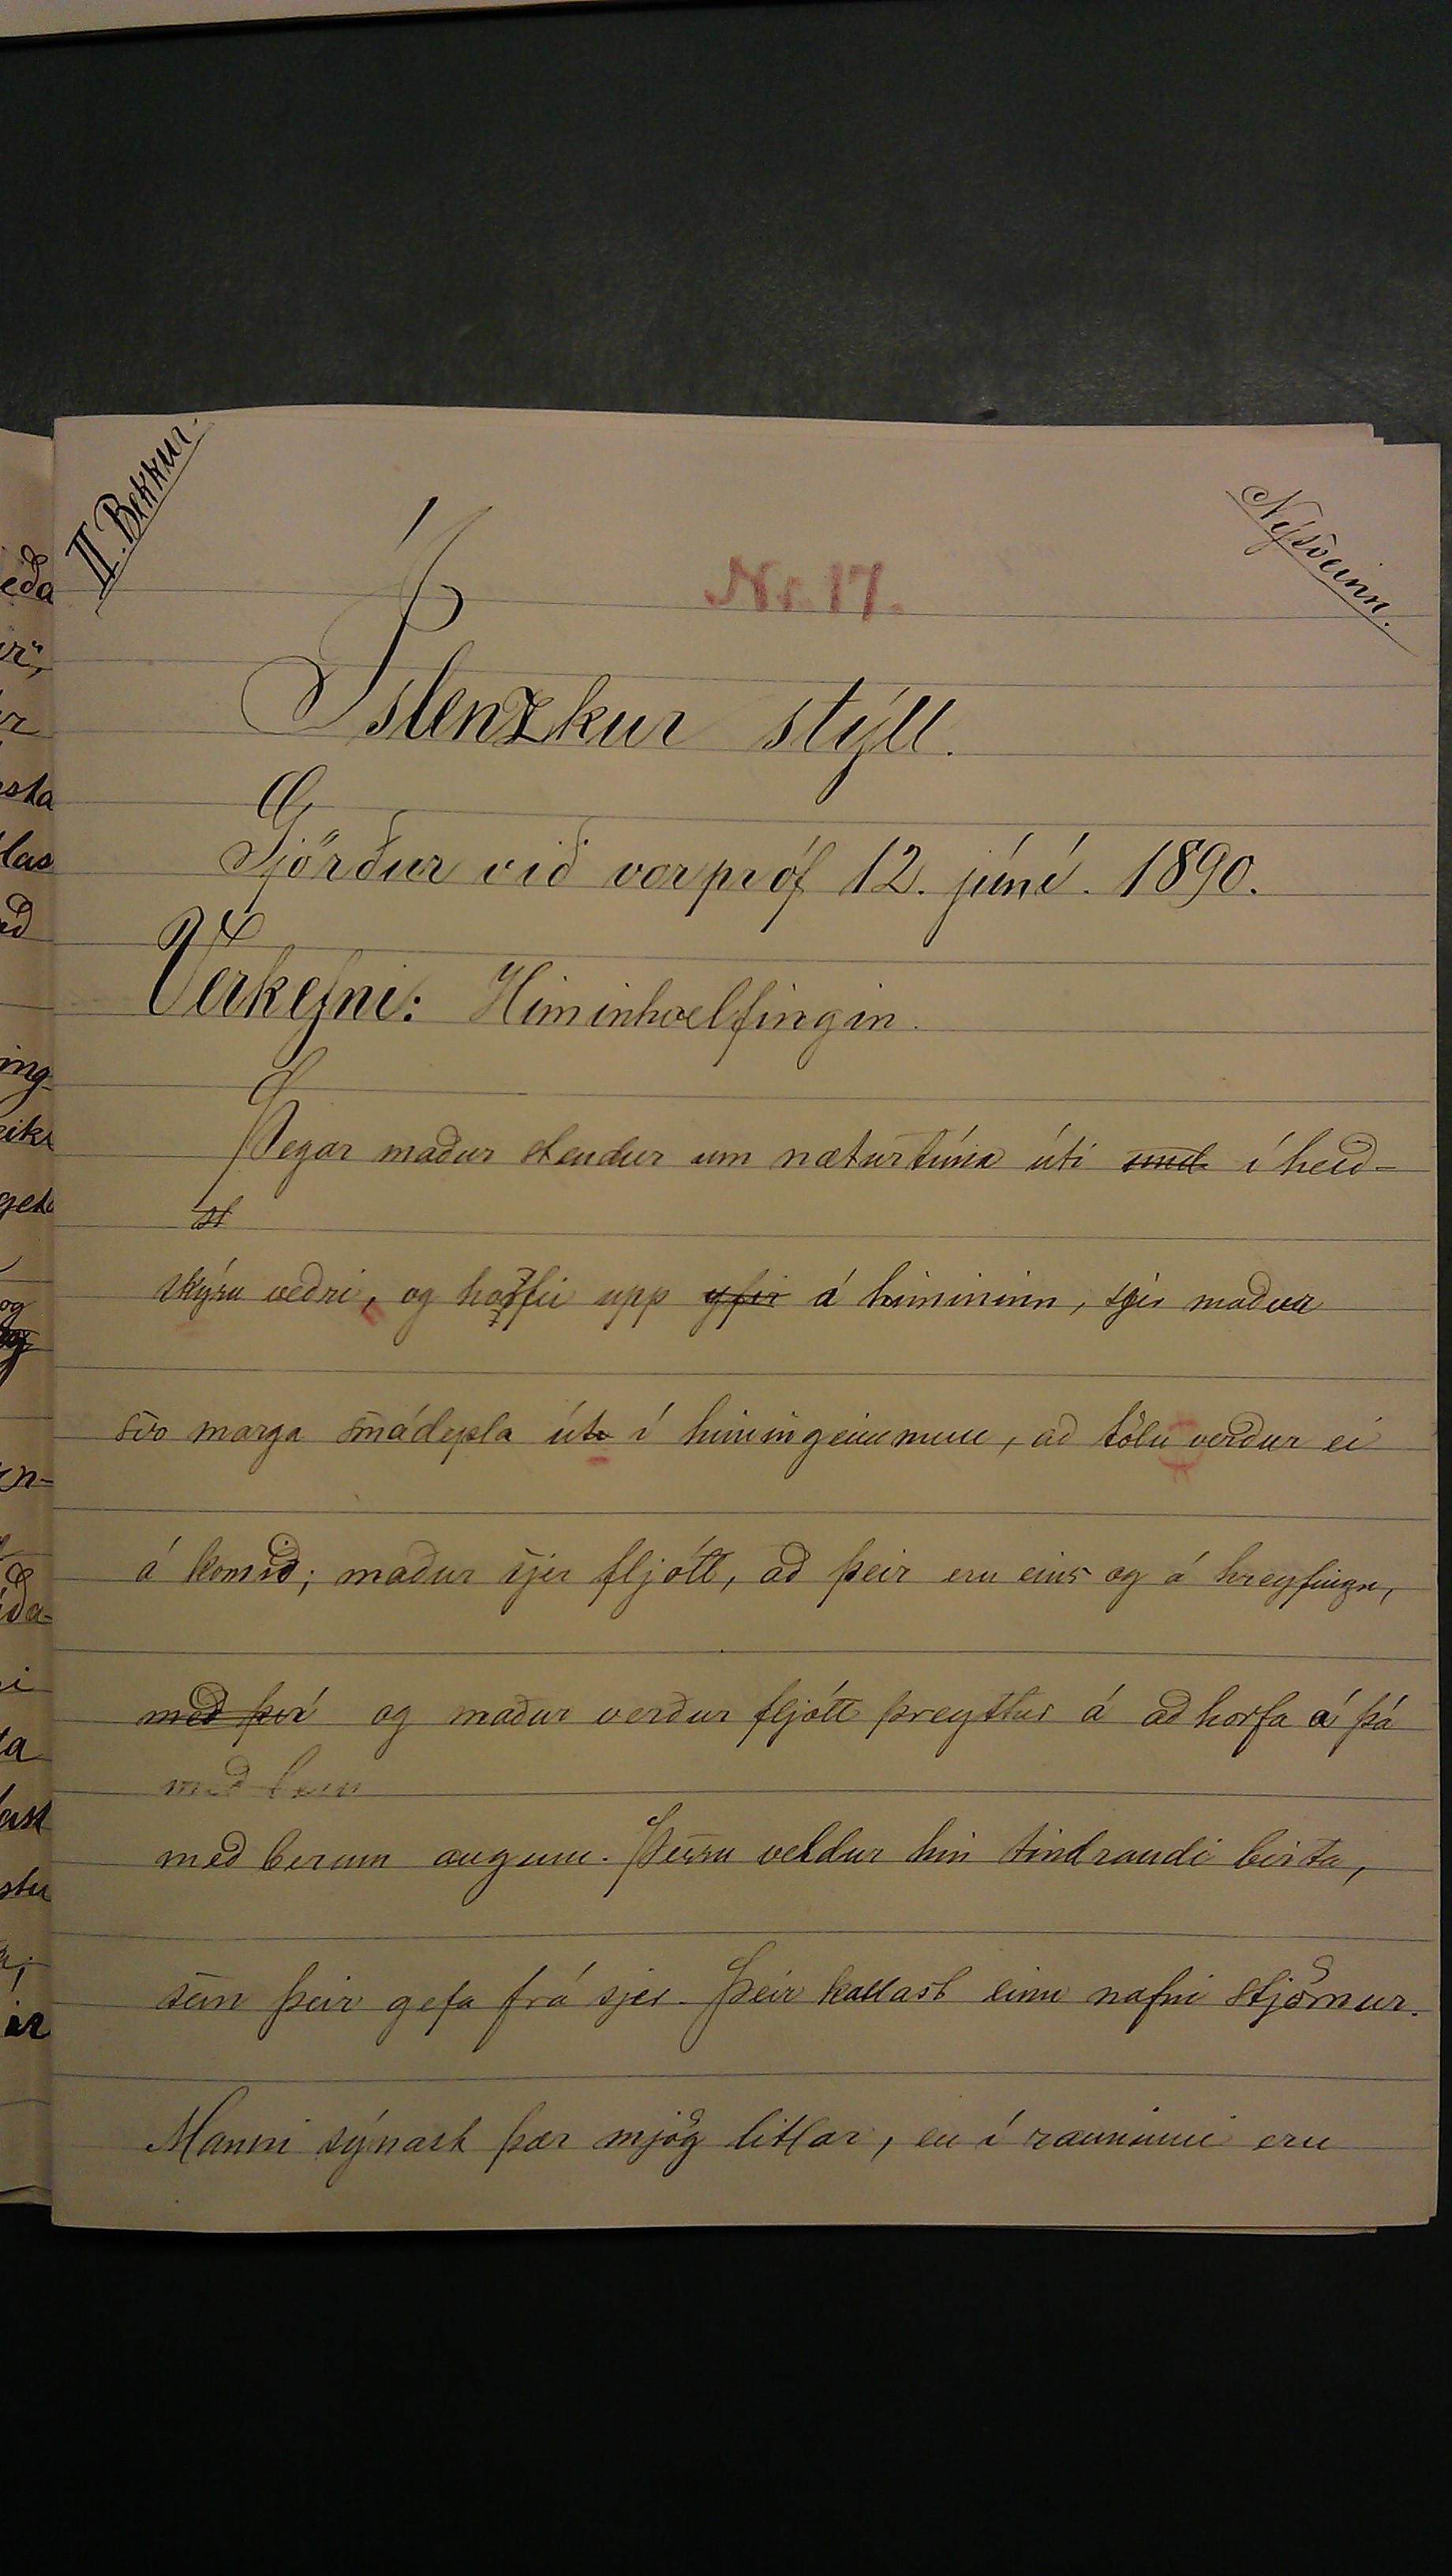 II. Bekkur.
Nýsveinn.
Nr. 17.
Íslenzkur stýll.
Gjörður við vorpróf 12. júní. 1890.
Verkefni: Himinhvelfingin.
Þegar maður stendur um næturtíma úti í heið-
skýru veðri, og horfir upp yfir á himininn, sjer maður
svo marga smádepla úti í himingeimnum, að tölu verður ei
á komið; maður sjer fljótt, að þeir eru eins og á hreyfingu,
með því og maður verður fljótt þreyttur á að horfa á þá
með berum
með berum augum. Þessu veldur hin tindrandi birta,
sem þeir gefa frá sjer. Þeir kallast einu nafni stjörnur.
Manni sýnast þær mjög litlar, en í rauninni eru